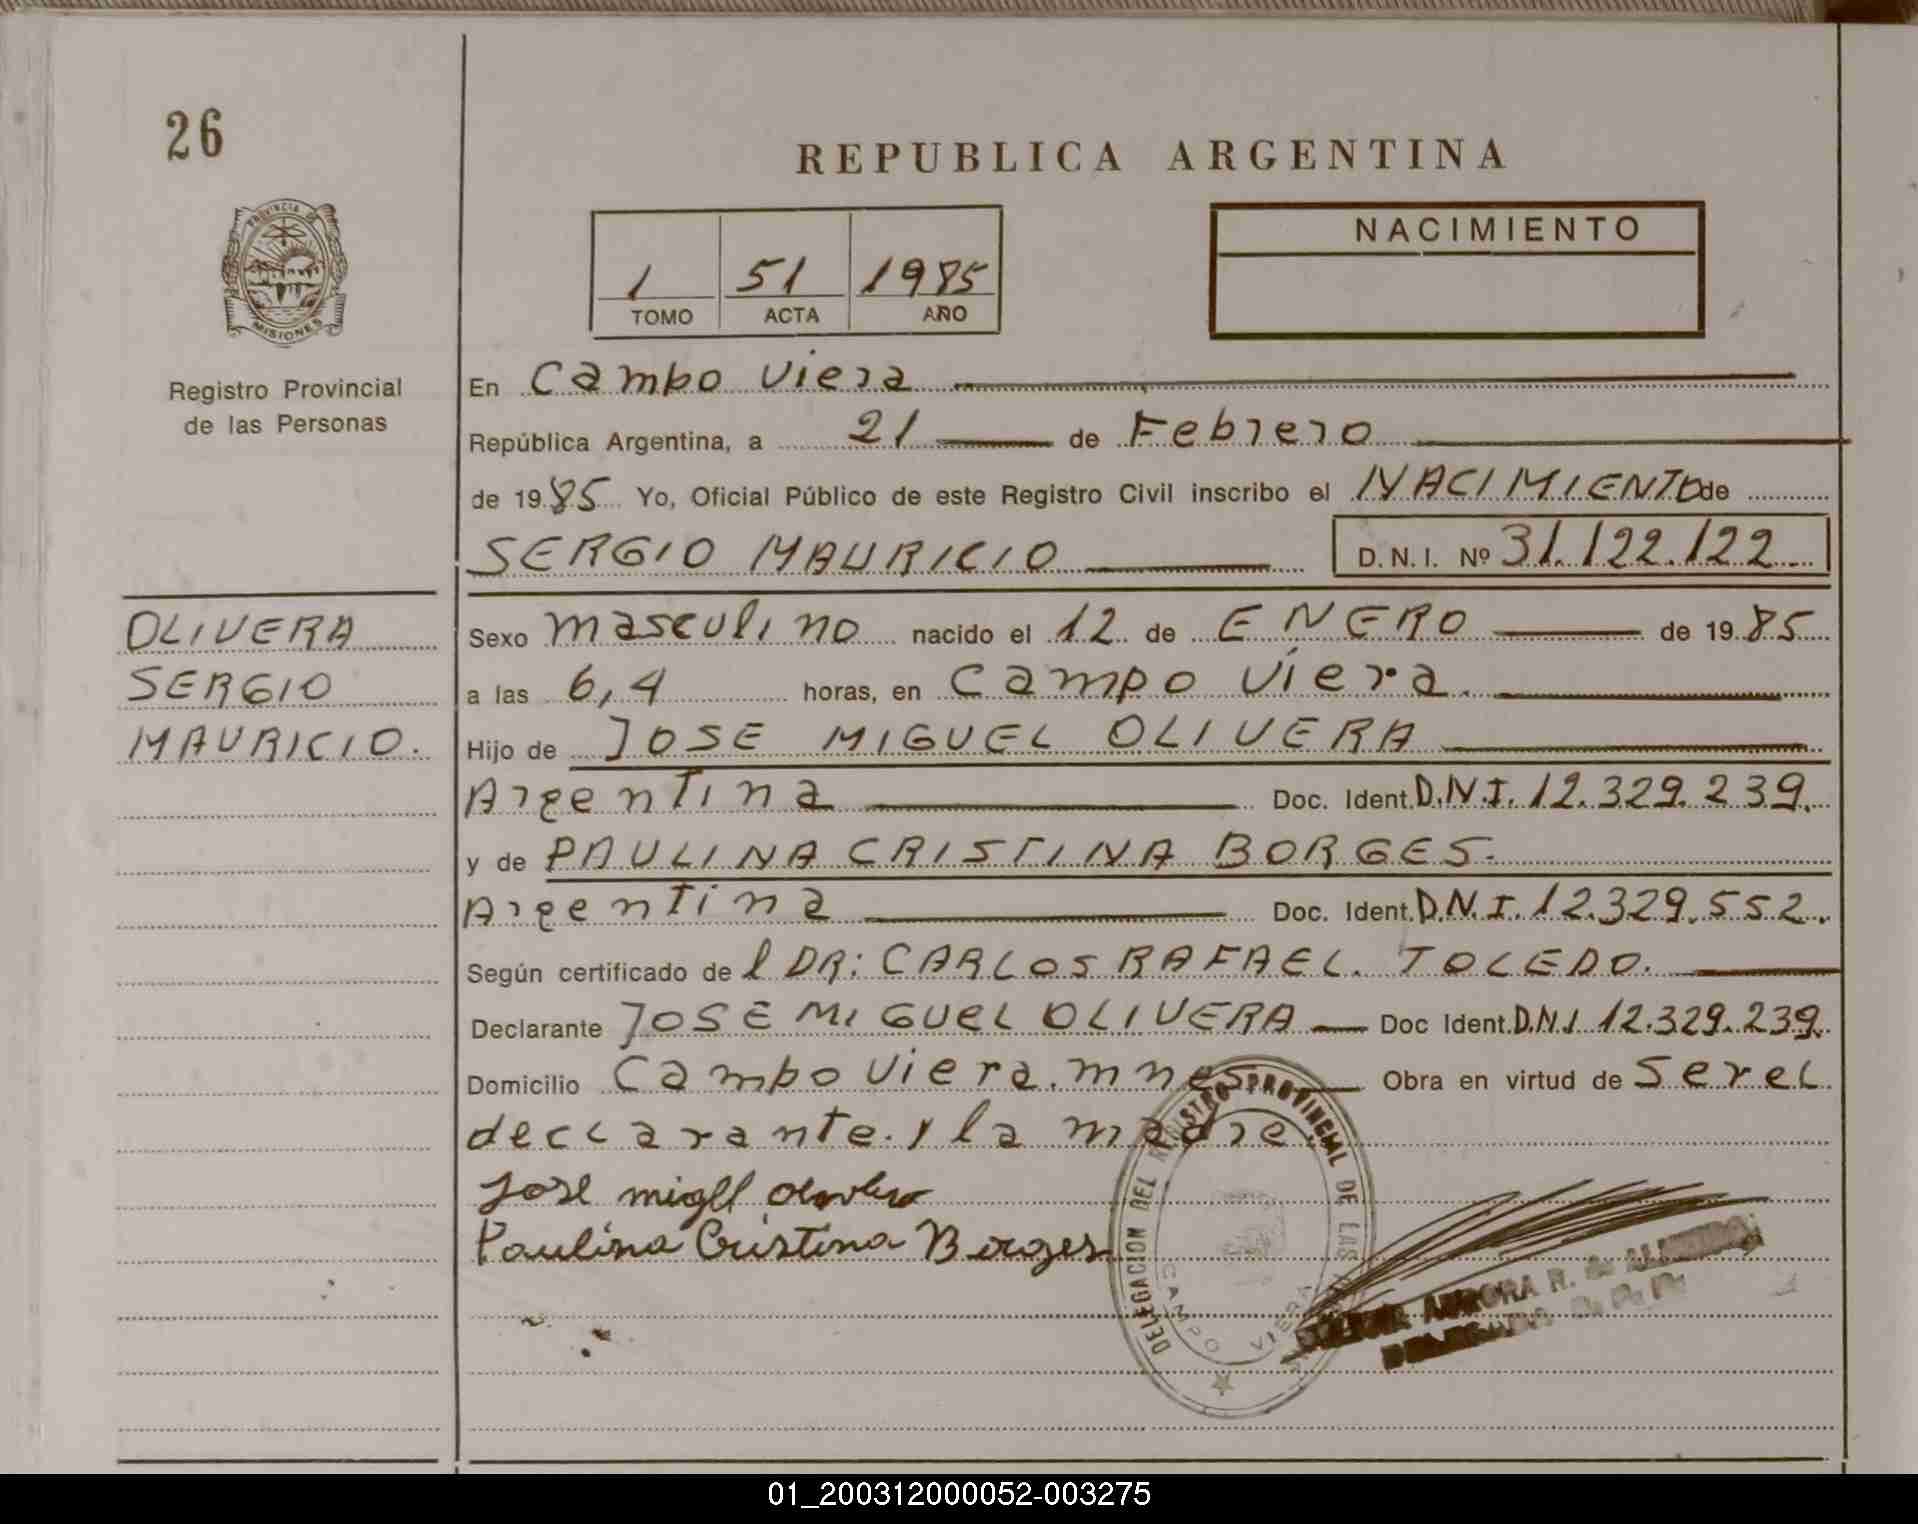 26
REPUBLICA ARGENTINA
PROVINCIA DE
MISIONES
Registro Provincial
de las Personas
1 51 1985
TOMO ACTA AÑO
NACIMIENTO
En Campo Viera
República Argentina, a 21 de Febrero
de 1985 Yo, Oficial Público de este Registro Civil inscribo el NACIMIENTO de
SERGIO MAURICIO D.N.I. Nº 31.122.122
OLIVERA
SERGIO
MAURICIO.
Sexo masculino nacido el 12 de ENERO de 1985
a las 6,4 horas, en Campo Viera.
Hijo de JOSE MIGUEL OLIVERA
Argentina Doc. Ident. D.N.I. 12.329.239.
y de PAULINA CRISTINA BORGES.
Argentina Doc. Ident. D.N.I. 12.329.552.
Según certificado de l DR: CARLOS RAFAEL. TOLEDO.
Declarante JOSE MIGUEL OLIVERA Doc Ident. D.N.I 12.329.239.
Domicilio Campo Viera. mnes Obra en virtud de Serel
declarante. y la madre
Jose migll
Paulina Cristina Borges
DELEGACION DEL REGISTRO PROVINCIAL DE LAS
CAMPO VIERA
AURORA R. de
01_200312000052-003275